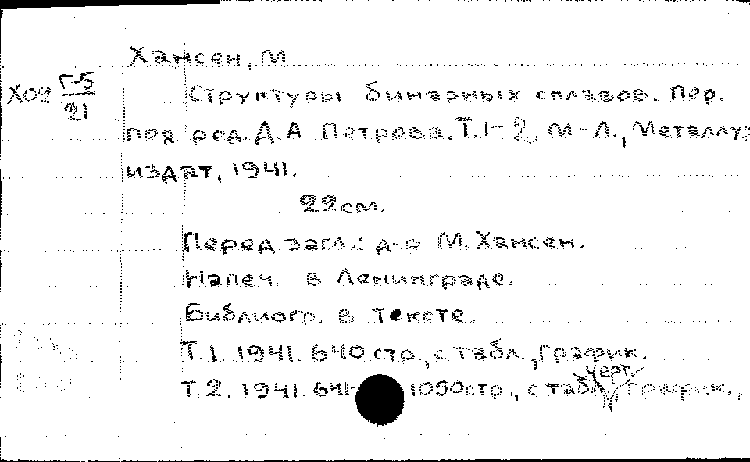 Хансен, М
Х02 Г-5/21
Структуры бинарных сплавов. Пер.
под ред. Д.А Петрова. Т.1-2, М-Л., Металлург
издат, 1941.
22 см.
Перед загл.: д-р М. Хансен.
Напеч. в Ленинграде.
Библиогр. в тексте.
Т.1. 1941. 640 стр., с табл., график.
черт.
Т.2. 1941. 641- 1050 стр., с табл график.,